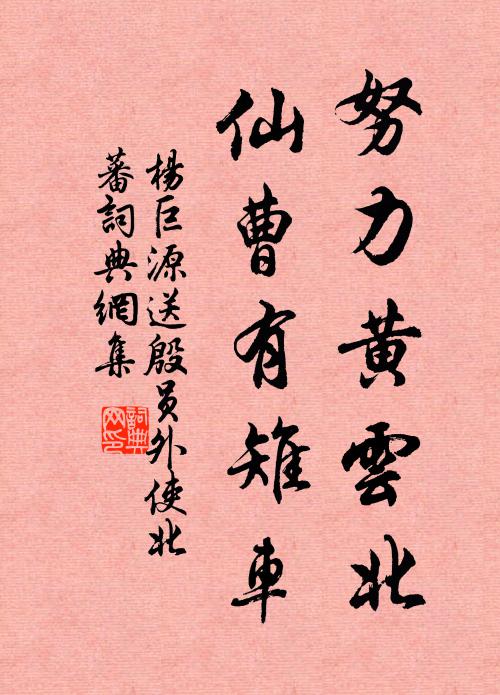 努力黃雲北
仙曹有雉車
楊巨源送殷員外使北
蕃詞典網集
詞典网印